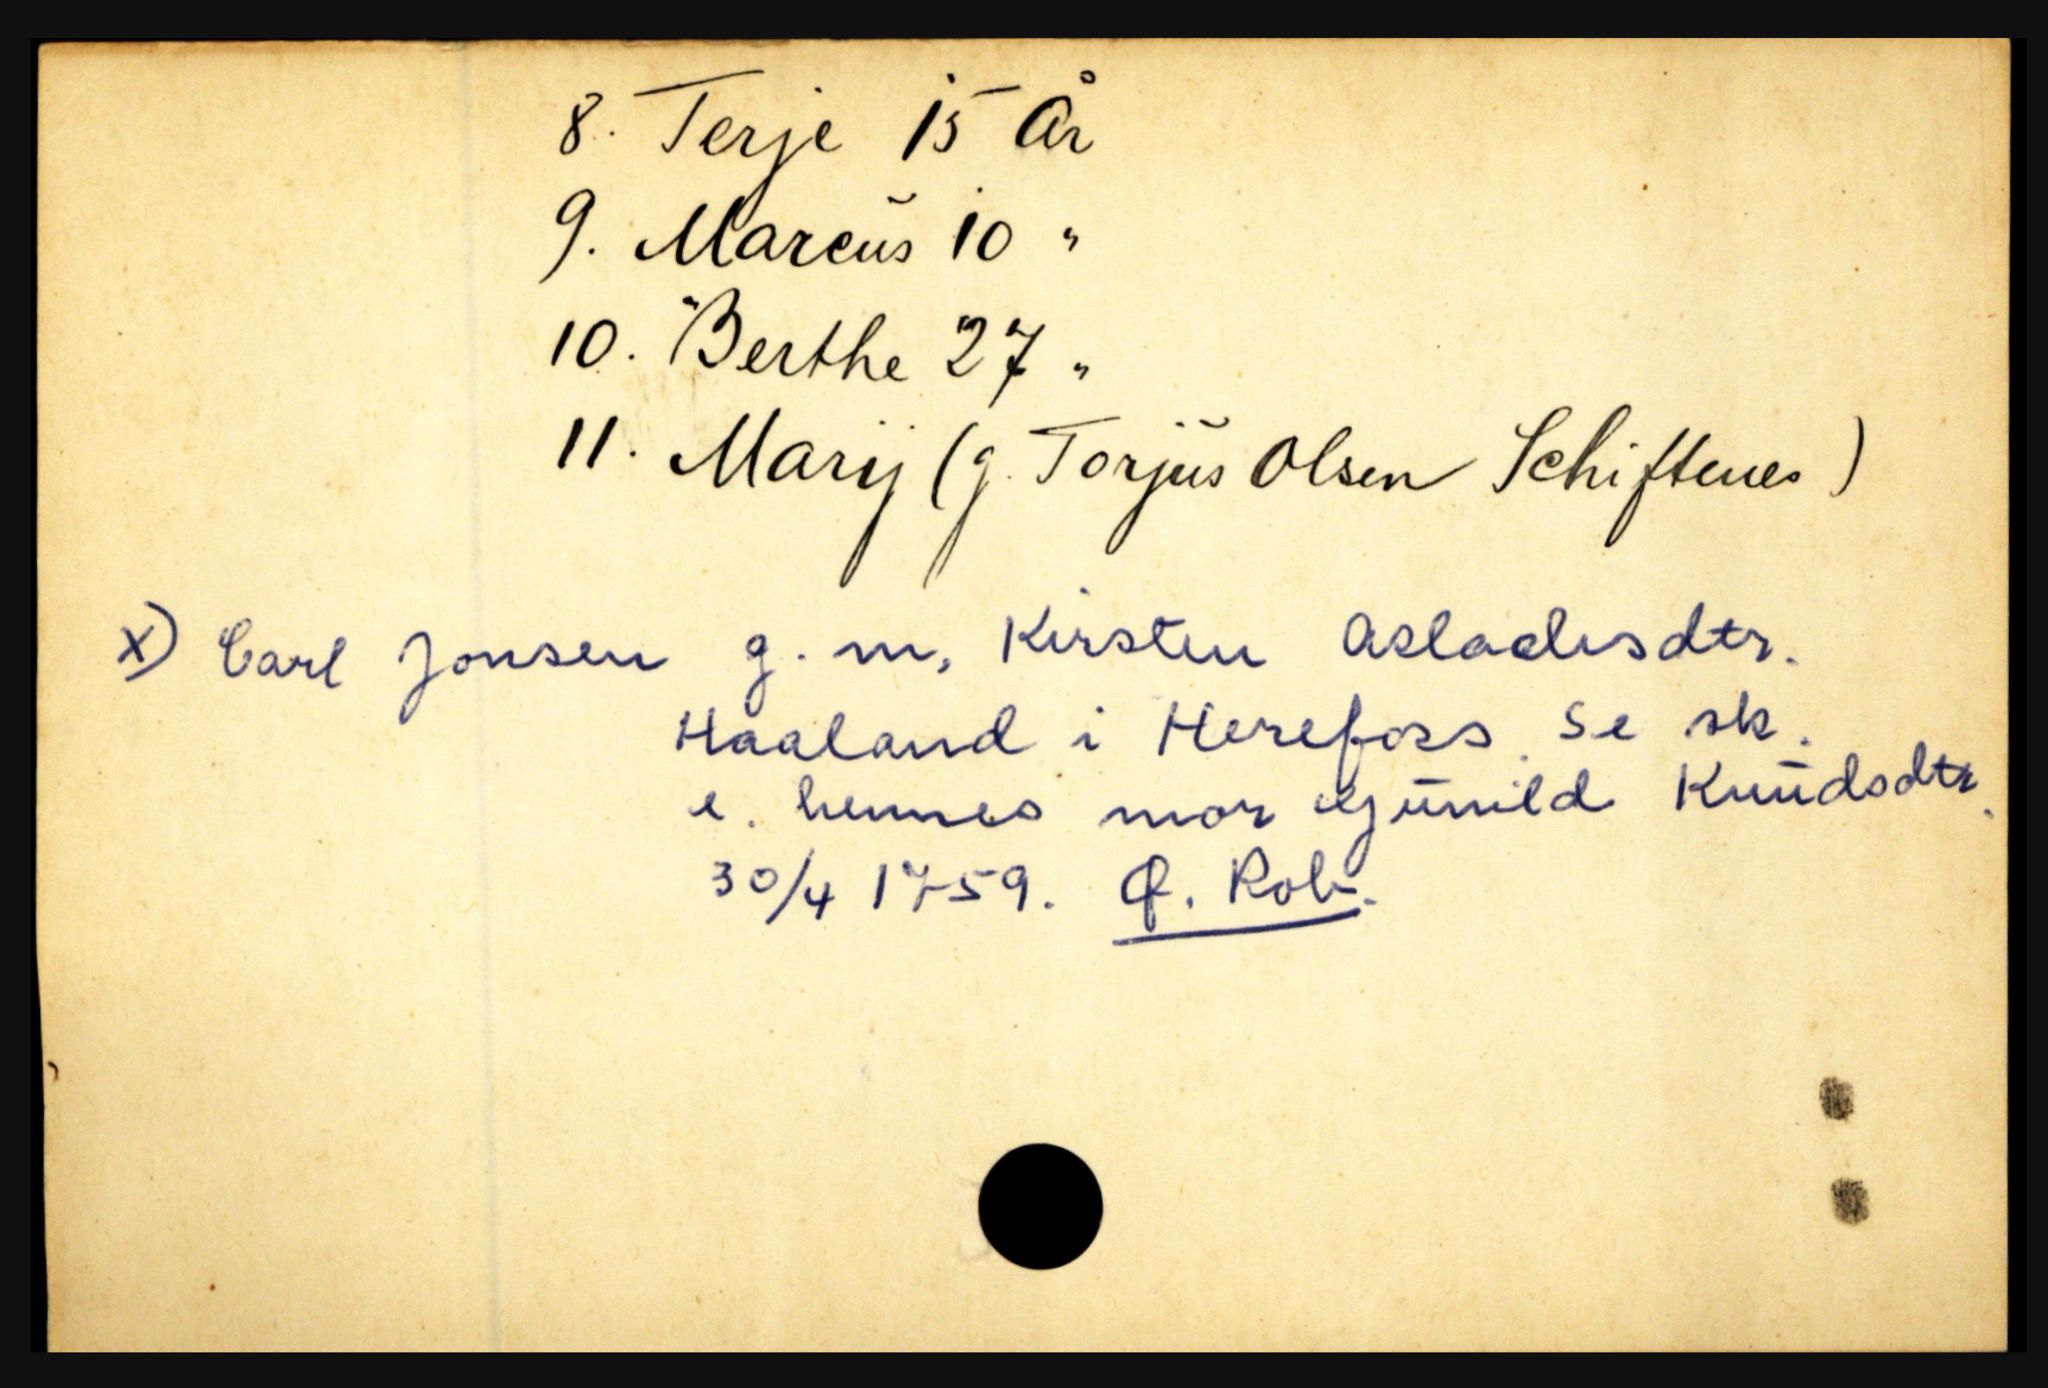 8. Terje 15 År
9. Marcus 10 "
10. Berthe 27 "
11. Marij (g. Torjus Olsen Schiftenes)
x) Carl Jonsen g. m. Kirsten Aslachsdtr.
Haaland i Herefoss. Se sk.
e. hennes mor Gunild Knudsdtr.
30/4 1759. Rob.